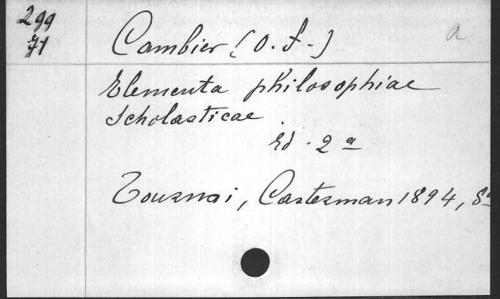 299
71
Cambier (O. F.)
a
Elementa philosophiae
scholasticae
Ed. 2a
Tournai, Casterman 1894, 8°